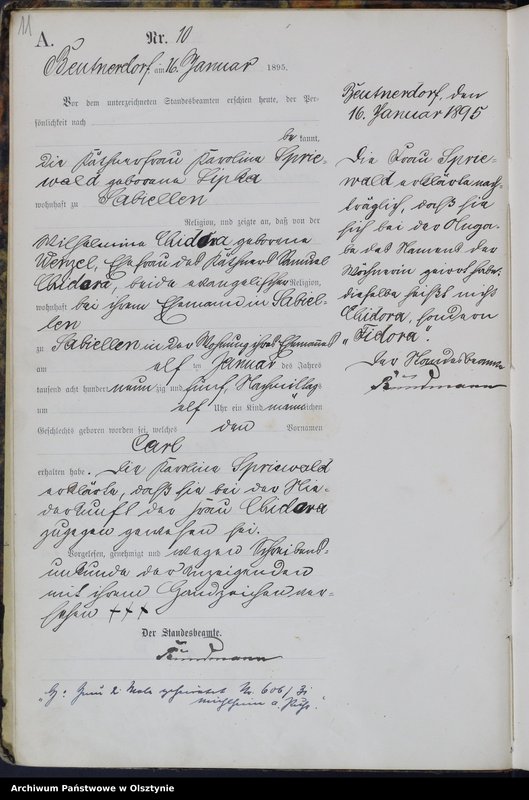 11
A.
Nr. 10
Beutnerdorf, am 16. Januar 1895.
Vor dem unterzeichneten Standesbeamten erschien heute, der Per-
sönlichkeit nach
be kannt,
die Käthnerfrau Karoline Sprie-
wald geborene Lipka
wohnhaft zu Sabiellen
Religion, und zeigte an, daß von der
Wilhelmine Chidora geborene
Wenzel, Ehefrau des Käthners Samuel
Chidora, beide evangelischer Religion,
wohnhaft bei ihrem Ehemann in Sabiel-
len
zu Sabiellen in der Wohnung ihres Ehemannes
am elf ten Januar des Jahres
tausend acht hundert neun zig und fünf, Nachmittag
um elf Uhr ein Kind männ lichen
Geschlechts geboren worden sei, welches den Vornamen
Carl
erhalten habe. Die Karoline Spriewald
erklärte, daß sie bei der Nie-
derkunft der Frau Chidora
zugegen gewesen sei.
Vorgelesen, genehmigt und wegen Schreibens-
unkunde der Anzeigenden
mit ihrem Handzeichen ver-
sehen +++
Der Standesbeamte.
Beutnerdorf, den
16. Januar 1895
Die Frau Sprie-
wald erklärte nach-
träglich, daß sie
sich bei der Anga-
be des Namens der
Wöhnerin geirrt habe,
dieselbe heißt nicht
Chidora, sondern
„Fidora".
Der Standesbeamte
2. Nr. 606/3
Archiwum Państwowe w Olsztynie